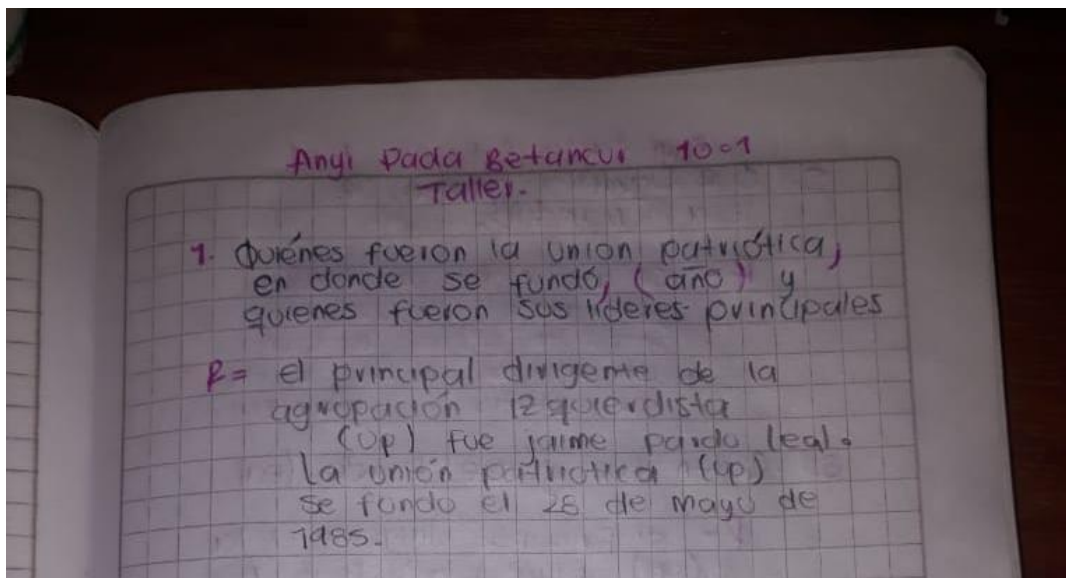 Anyi Pada Betancur 10-1
Taller.
1. Quiénes fueron la union patriótica,
en donde se fundó, (año) y
quienes fueron sus líderes principales
R= el principal dirigente de la
agrupación izquierdista
(Up) fue jaime pardo leal.
la unión patriotica (up)
se fundo el 28 de mayo de
1985.